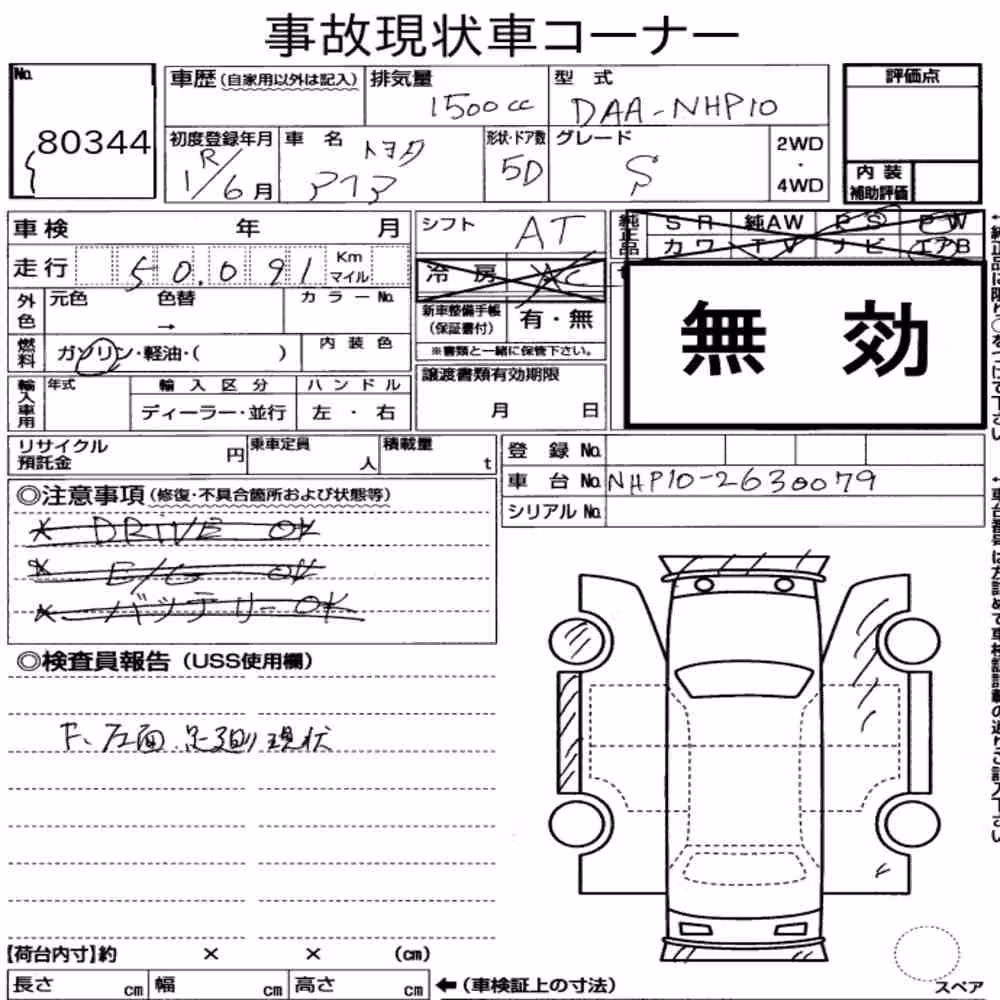 事故現状車コーナー
No.
80344
車歴(自家用以外は記入)
排気量
1500cc
型式
DAA-NHP10
評価点
初度登録年月
R1/6月
車名
トヨタ
アクア
形状・ドア数
5D
グレード
S
2WD
・
4WD
内装
補助評価
車検 年 月
シフト
AT
純正品
SR 純AW PS PW
カワ TV ナビ エアB
走行
50,091
Km
マイル
冷房
AC
外色
元色 色替 カラーNo.
→
新車整備手帳
(保証書付)
有・無
※書類と一緒に保管下さい。
無効
燃料
ガソリン・軽油・( )
内装色
輸入車用
年式
輸入区分
ディーラー・並行
ハンドル
左・右
譲渡書類有効期限
月 日
リサイクル
預託金
円
乗車定員
人
積載量
t
登録No.
車台No.
NHP10-2630079
シリアルNo.
◎注意事項(修復・不具合箇所および状態等)
* DRIVE OK
* E/G OK
* バッテリーOK
◎検査員報告(USS使用欄)
F、左面、足廻り現状
【荷台内寸】約 × × (cm)
長さ cm 幅 cm 高さ cm
←(車検証上の寸法)
スペア